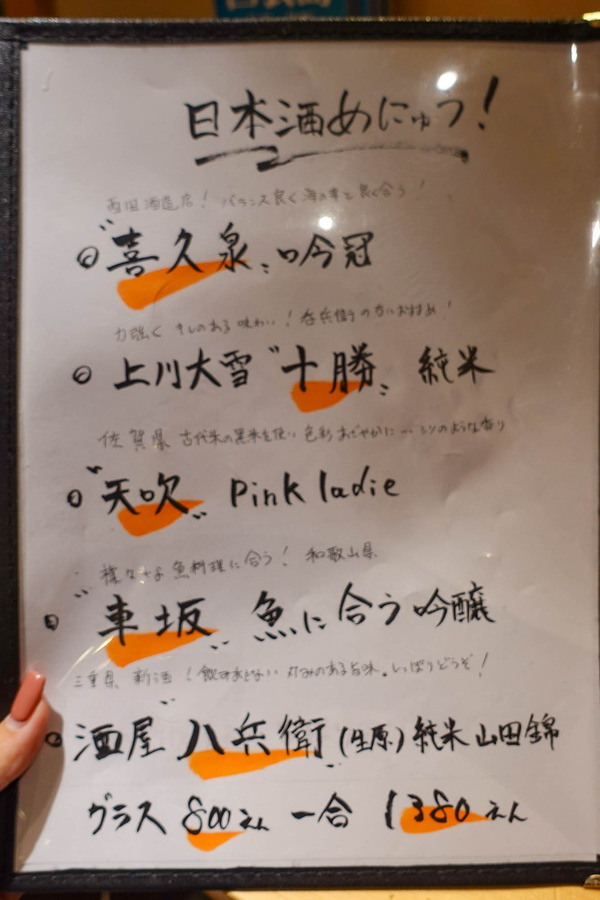 日本酒めにゅう！
西田酒造店！バランス良く海の幸と良く合う！
"喜久泉" 吟冠
力強くキレのある味わい！呑兵衛の方におすすめ！
上川大雪 "十勝" 純米
佐賀県 古代米の黒米を使い 色彩あざやかに… のような香り
"天吹" Pink ladie
様々な魚料理に合う！ 和歌山県
"車坂" 魚に合う吟醸
三重県 新酒！飲みあきない のある旨味。しっぽりどうぞ！
酒屋 "八兵衛" (生原) 純米 山田錦
グラス 800えん 一合 1380えん